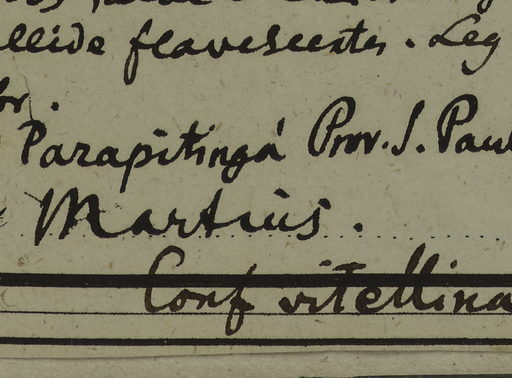 llide flavescentes. Leg
br.
Parapitinga Prov. S. Paul
Martius.
Conf vitellina